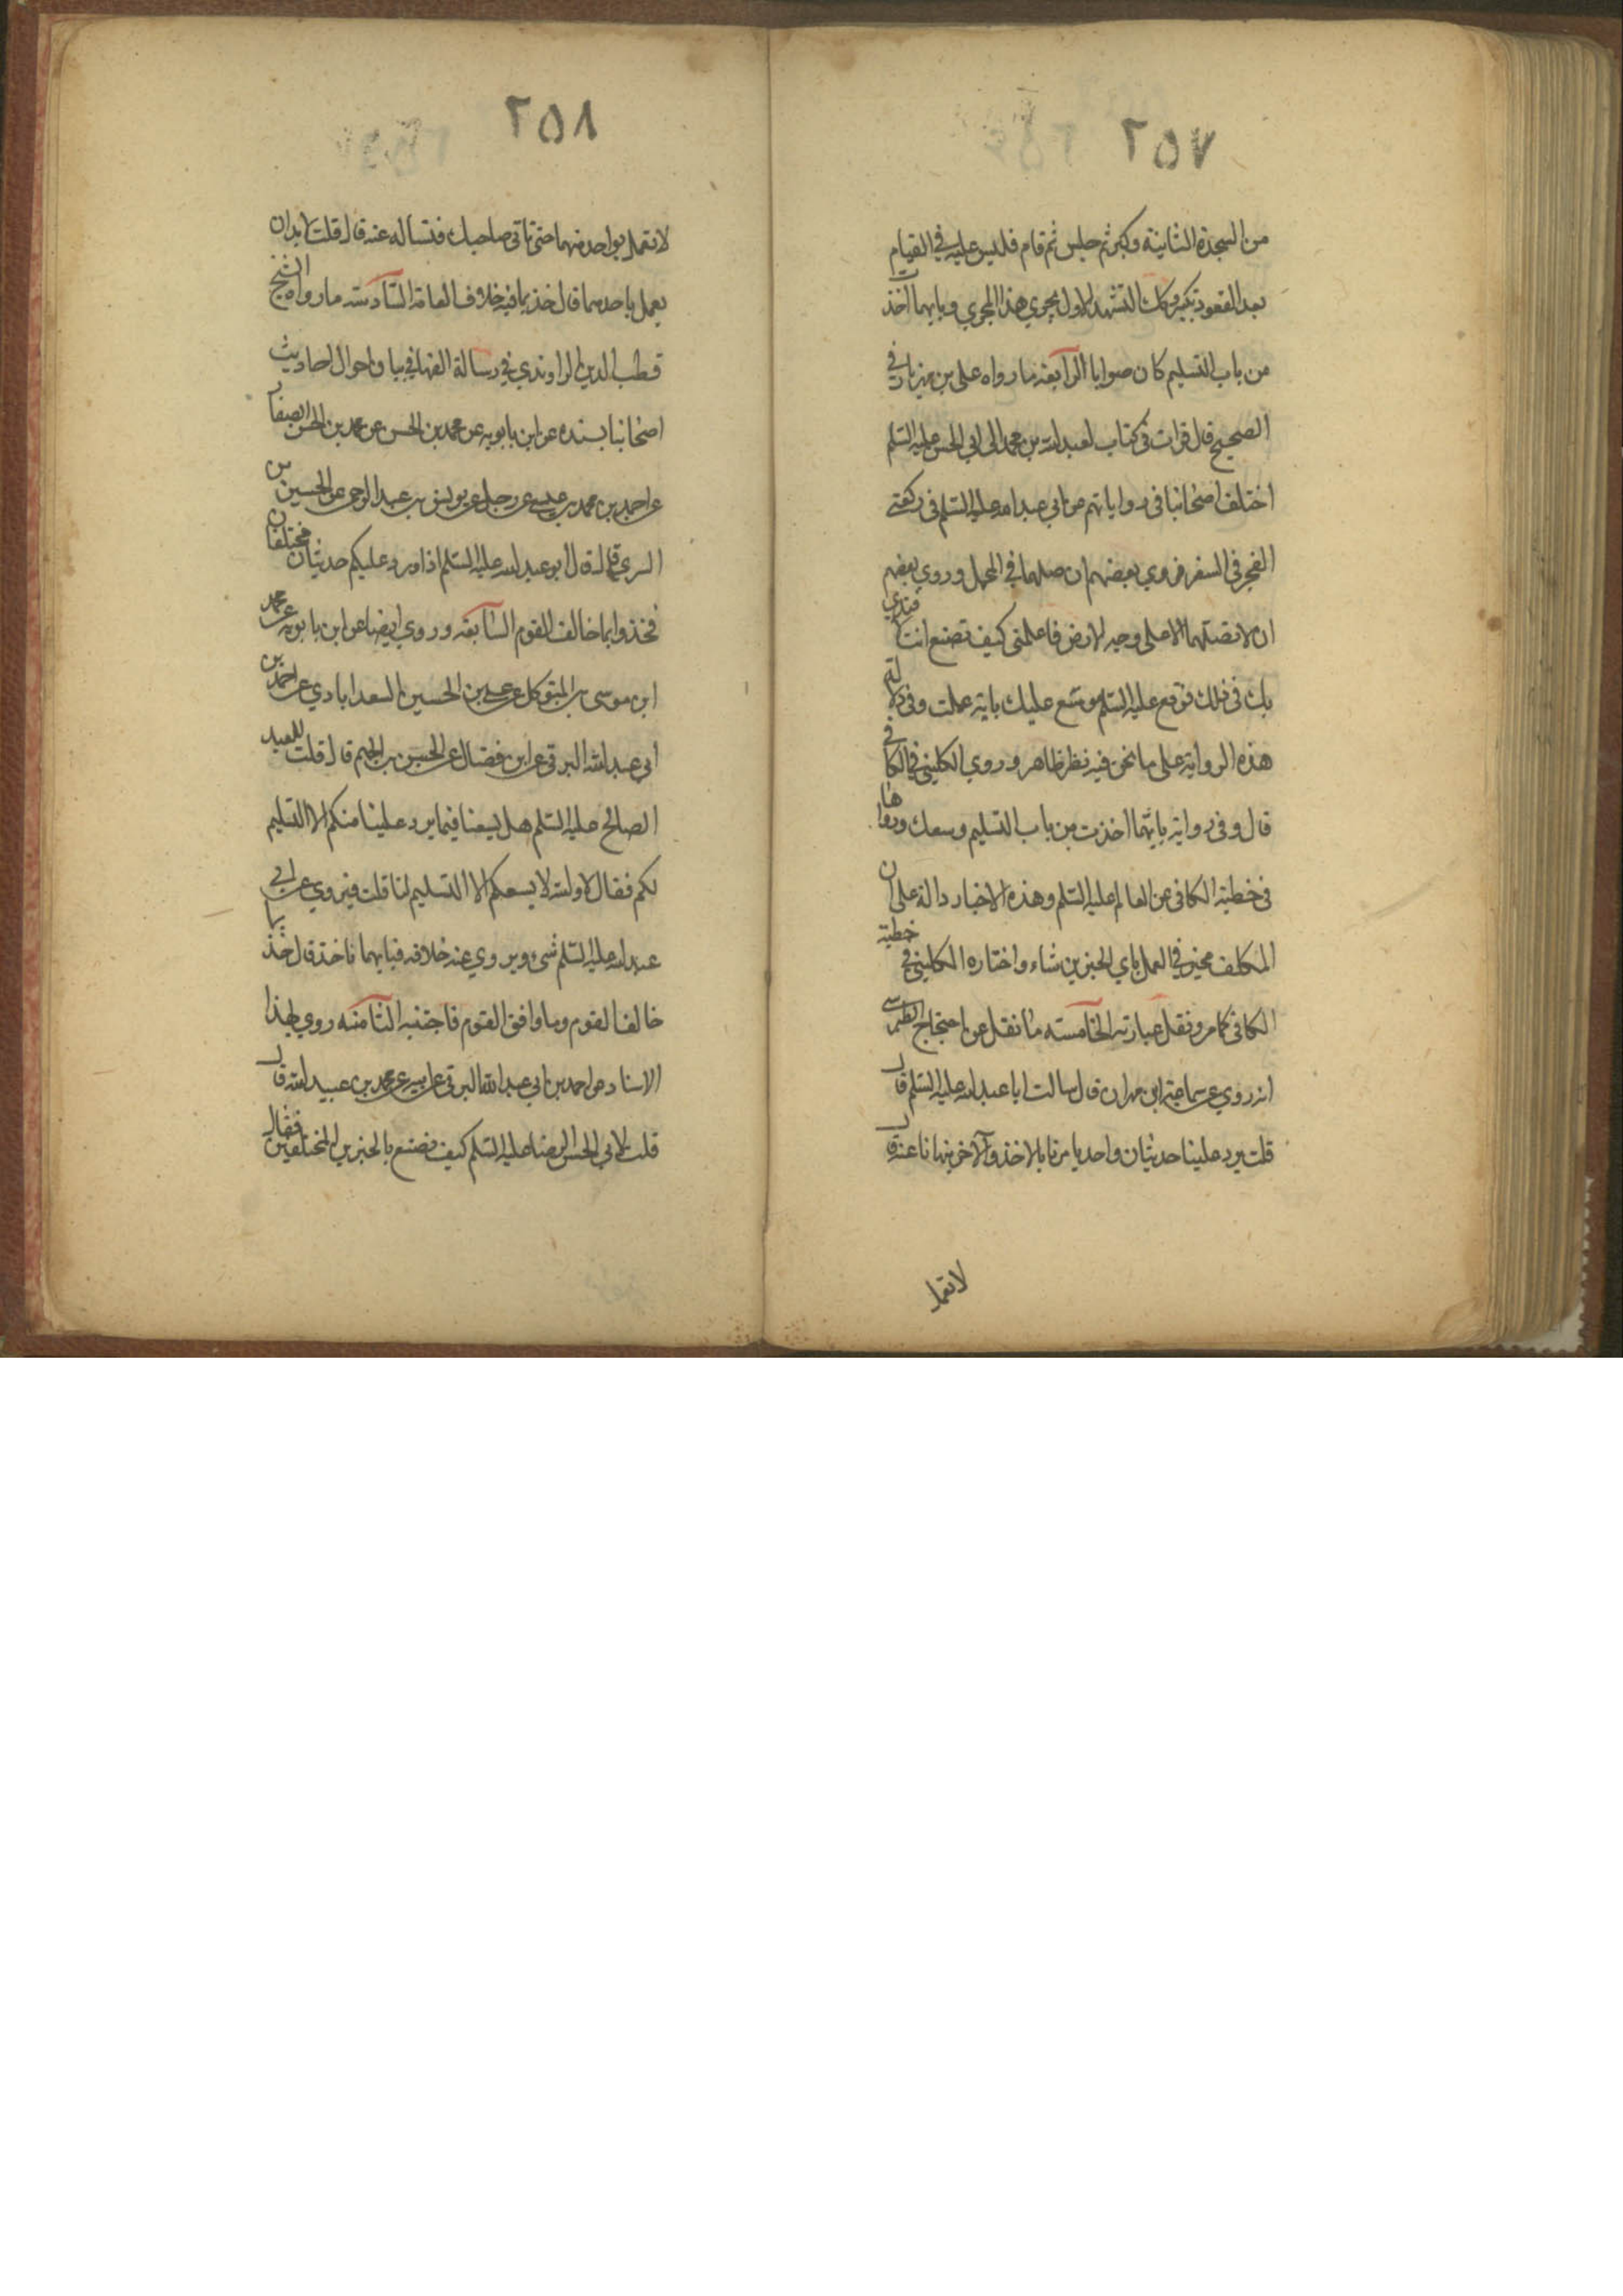 ٢٥٧
من السجدة الثانية وكبر ثم جلس ثم قام فليس عليه في القيام
بعد القعود تكبير وكك التشهد الاول يجري هذا المجري وبايهما اخذت
من باب التسليم كان صوابا الرابعة ما رواه علي بن مهزيار في
الصحيح قال قرات في كتاب لعبد الله بن محمد الى ابي الحسن عليه السلم
اختلف اصحانبا في رواياتهم عن ابي عبد الله عليه السلم في ركعتي
الفجر في السفر فروي بعضهم ان صلهما في المحمل وروي بعضهم
ان لا تصلهما الا على وجه الارض فاعلمني كيف تصنع انت لاقتدي
بك في ذلك فوقع عليه السلم موسع عليك باية عملت وفي دلالة
هذه الرواية على ما نحن فيه نظر ظاهر وروي الكليني في الكافي
قال وفي رواية بايهما اخذت من باب التسليم وسعك ورواها
في خطبة الكافي عن العالم عليه السلم وهذه الاخبار دالة على ان
المكلف مخير في العمل باي الخبرين شاء واختاره الكليني في خطبة
الكافي كما مر ونقل عبارته الخامسة ما نقل عن احتجاج الطبرسي
انه روي عن سماعة ابن مهران قال سالت ابا عبد الله عليه السلم قال
قلت يرد علينا حديثان واحد يامرنا بالاخذ والآخر ينهانا عنه قال
لا تعمل
٢٥٨
لا تعمل بواحد منهما حتى تاتي صاحبك فتساله عنه قال قلت لا بد ان
يعمل باحدهما قال خذ بما فيه خلاف العامة السادسة ما رواه الشيخ
قطب الدين الراوندي في رسالة الفها في بيان احوال احاديث
اصحانبا بسنده عن ابن بابويه عن محمد بن الحسن عن محمد بن الحسن الصفار
عن احمد بن محمد بن عيسى عن رجل عن يونس بن عبد الرحمن عن الحسين بن
السري قال قال ابو عبد الله عليه السلم اذا ورد عليكم حديثان مختلفان
فخذوا بما خالف القوم السابعة وروي ايضا عن ابن بابويه عن محمد
ابن موسى بن المتوكل عن علي بن الحسين السعدابادي عن احمد بن
ابي عبد الله البرقي عن ابن فضال عن الحسن بن الجهم قال قلت للعبد
الصالح عليه السلم هل يسعنا فيما يرد علينا منكم الا التسليم
لكم فقال لا والله لا يسعكم الا التسليم لنا قلت فيروي عن ابي
عبد الله عليه السلم شيء ويروي عنه خلافه فبايهما ناخذ قال خذ بما
خالف القوم وما وافق القوم فاجتنبه الثامنه روي بهذا
الاسناد عن احمد بن ابي عبد الله البرقي عن ابيه عن محمد بن عبيد الله قال
قلت لابي الحسن الرضا عليه السلم كيف نصنع بالخبرين المختلفين فقال